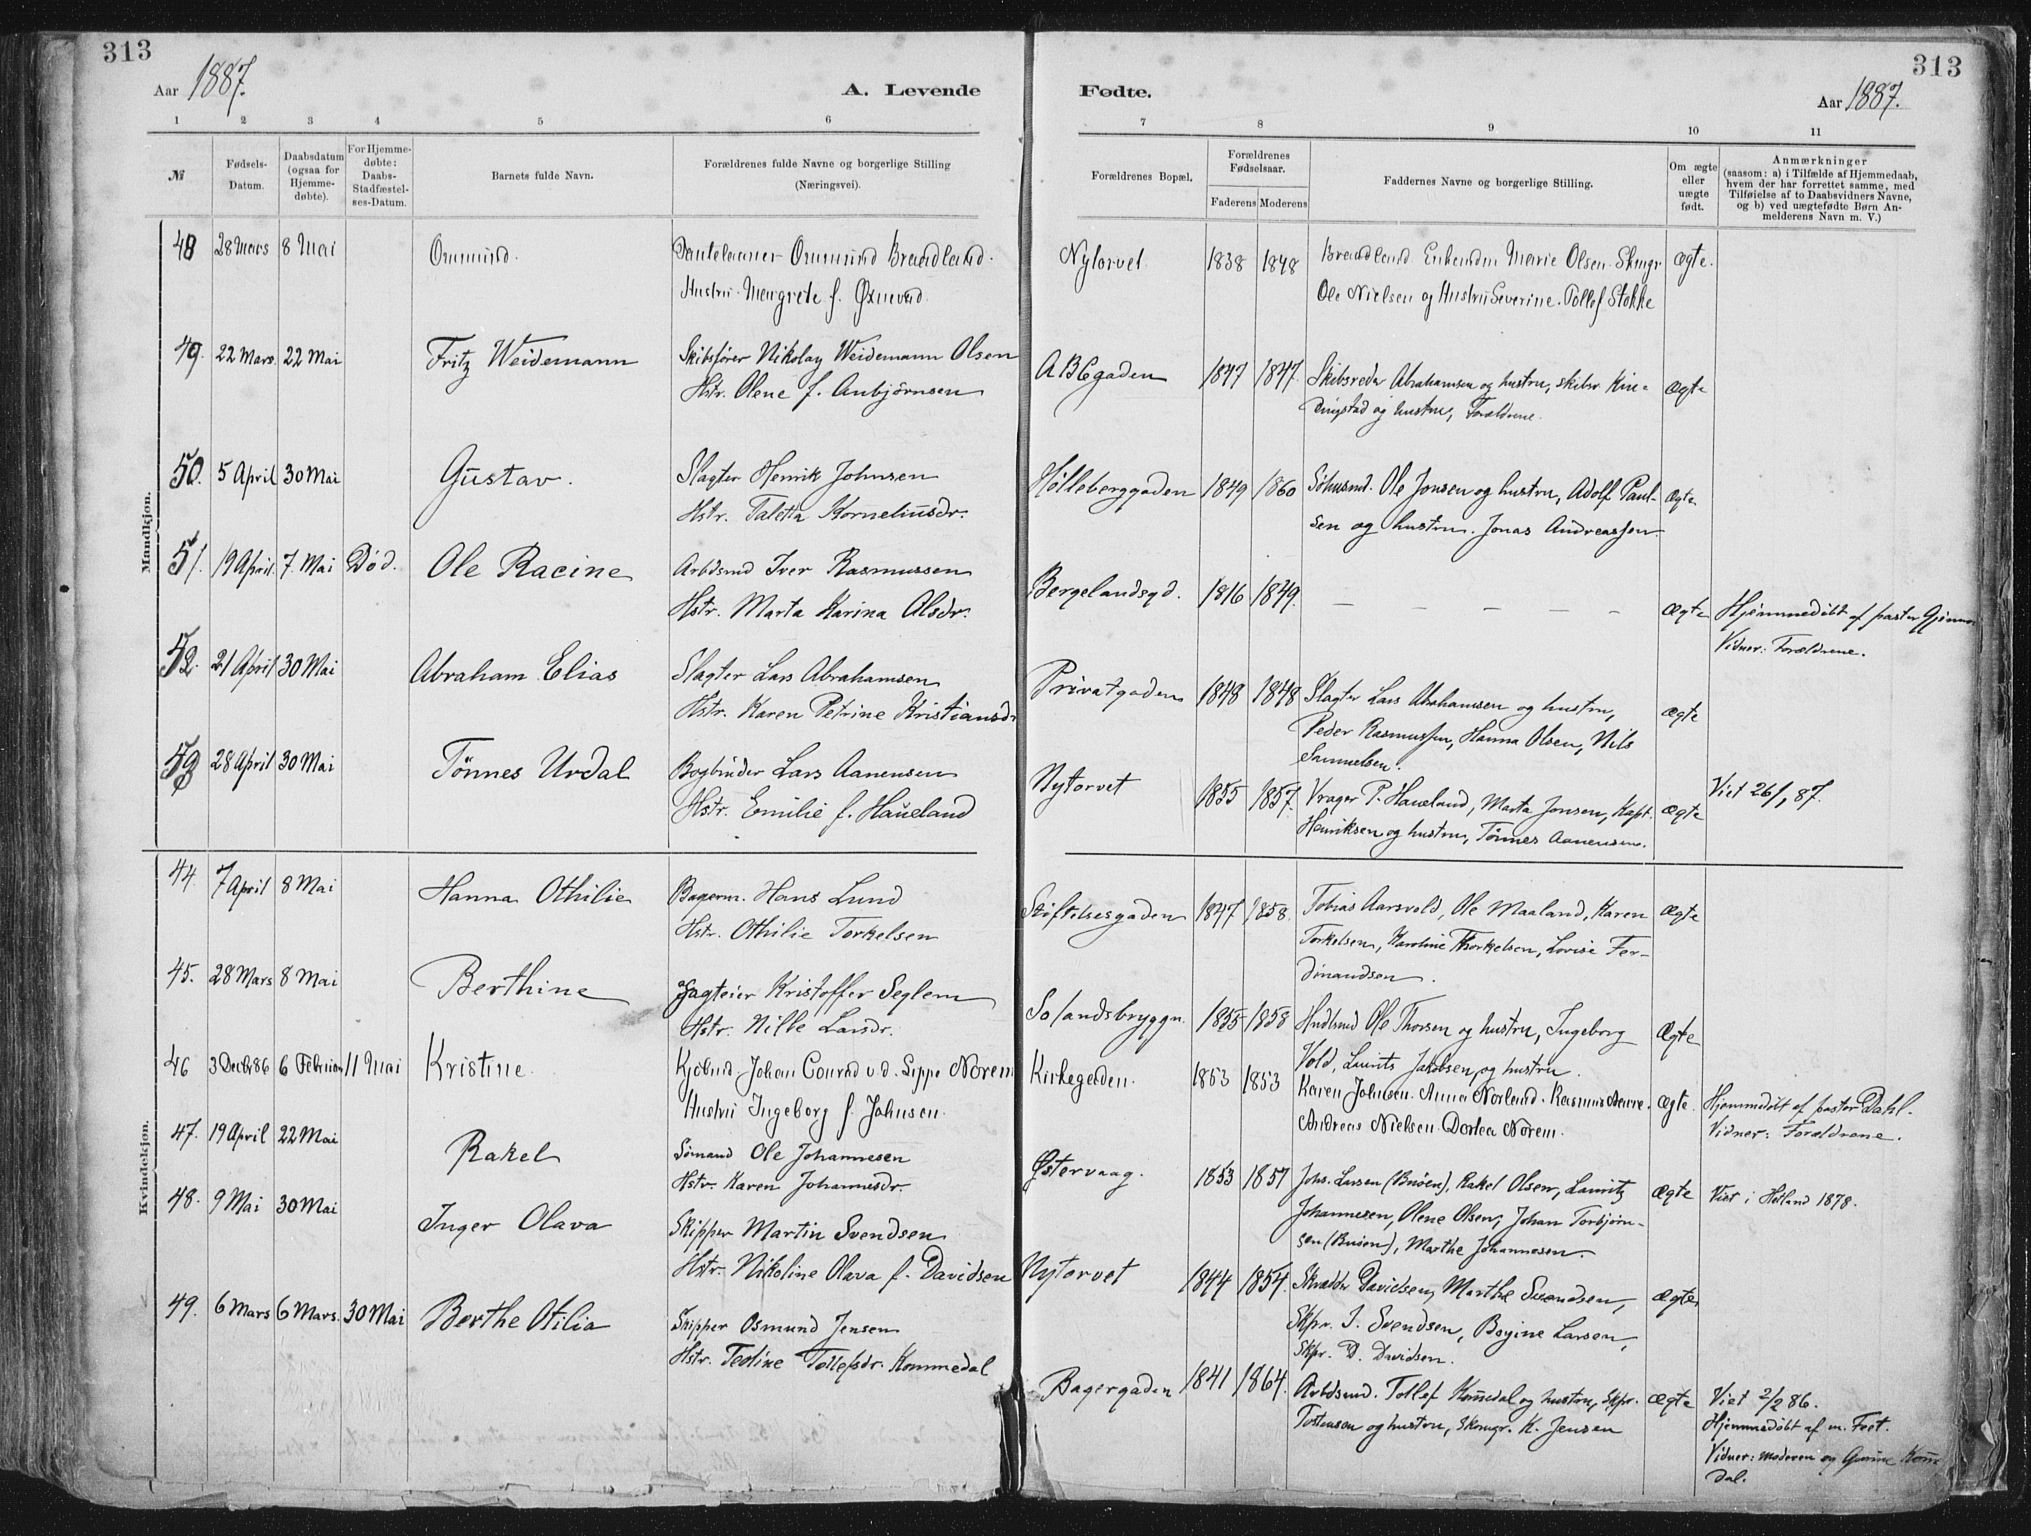 313
313
Aar 1887.
A. Levende
Fødte.
Aar 1887.
1 2 3 4 5 6
7 8 9 10 11
№
Fødsels-Datum.
Daabsdatum (ogsaa for Hjemme-døbte).
For Hjemme-døbte: Daabs-Stadfæstel-ses-Datum.
Barnets fulde Navn.
Forældrenes fulde Navne og borgerlige Stilling
(Næringsvei).
Forældrenes Bopæl.
Forældrenes Fødselsaar.
Faderens Moderens
Faddernes Navne og borgerlige Stilling.
Om ægte eller uægte født.
Anmærkninger
(saasom: a) i Tilfælde af Hjemmedaab,
hvem der har forrettet samme, med
Tilføielse af to Daabsvidners Navne,
og b) ved uægtefødte Børn An-
melderens Navn m. V.)
Mandkjøn.
48 28 Mars 8 Mai Ommund. Ommund Braadland.
Hustru Margrete f. Øxnevad.
Nytorvet 1838 1848 Braadland. Enkemdm Marie Olsen. Skmgr. ægte.
Ole Nielsen og Hustru Severine. Tollef Stokke
49. 22 Mars. 22 Mai Fritz Weidemann Skibsfører Nikolay Weidemann Olsen
Hstr. Olene f. Anbjørnsen
ABCgaden 1847 1847. Skibsreder Abrahamsen og hustru, skibsr. Kin-
dingstad og hustru, Forældrene. ægte
50. 5 April 30 Mai Gustav. Slagter Henrik Johnsen
Hstr. Taletta Korneliusdr.
Hølleberggaden 1849 1860 Søhusmd. Ole Jonsen og hustru, Adolf Paul-
sen og hustru. Jonas Andreassen. ægte
51. 19 April. 7. Mai Død. Ole Racine Arbdsmd Iver Rasmussen
Hstr. Marta Karina Olsdr.
Bergelandsgd. 1816 1849. — — — — — ægte Hjemmedøbt af pastor
Vidner: Forældrene.
52. 21 April 30 Mai Abraham Elias Slagter Lars Abrahamsen
Hstr. Karen Petrine Kristiansdr
Privatgaden 1848 1848 Slagter Lars Abrahamsen og hustru,
Peder Rasmussen, Hanna Olsen, Nils
Samuelsen. ægte
53 28 April 30 Mai Tønnes Urdal Bogbinder Lars Aanensen
Hstr. Emilie f. Haueland
Nytorvet 1855 1857. Vrager P. Haueland, Marta Jonsen, Kapt.
Henriksen og hustru, Tønnes Aanensen. ægte Viet 26/1 87.
Kvindekjøn.
44. 7 April 8 Mai Hanna Othilie Bagerm. Hans Lund
Hstr. Othilie Torkelsen
Stiftelsesgaden 1847 1858. Tobias Aarsvold, Ole Maaland, Karen
Torkelsen, Karoline Thorkelsen, Lovise Fer-
dinandsen. ægte
45. 28 Mars 8 Mai Berthine Jagteier Kristoffer Seglem
Hstr. Nille Larsdr.
Solandsbryggn. 1855 1858 Hndlsmd Ole Thorsen og hustru, Ingeborg
Vold, Laurits Jakobsen, og hustru. ægte
46 3 Decbr 86 6 Februar 11 Mai Kristine. Kjøbmd. Johan Conrad v. d. Lippe Norem
Hustru Ingeborg f. Johnsen.
Kirkegaden. 1853 1853 Karen Johnsen. Anna Norland. Rasmus Aarre.
Andreas Nielsen. Dortea Norem. ægte. Hjemmedøbt af pastor Dahl.
Vidner: Forældrene.
47. 19 April 22 Mai Rakel Sømand Ole Johannesen
Hstr. Karen Johannesdr.
Østervaag. 1853 1857 Johs. Larsen (Buøen), Rakel Olsen, Lauritz
Johannesen, Olene Olsen, Johan Torbjørn-
sen (Buøen), Marthe Johannesen. ægte Viet i Hetland 1878.
48. 9 Mai 30 Mai Inger Olava Skipper Martin Svendsen
Hstr. Nikoline Olava f. Davidsen
Nytorvet 1844 1854. Skrædder Davidsen, Marthe Svendsen,
Skpr. S. Svendsen, Bogine Larsen,
Skpr. D. Davidsen. ægte
49. 6 Mars 6 Mars. 30 Mai Berthe Otilia Skipper Osmund Jensen
Hstr. Teoline Tollefsdr. Kommedal
Bagergaden 1841 1864. Arbdsmd. Tollef Komedal og hustru, Skpr.
Tostensen og hustru, Skomgr. K. Jensen ægte Viet 2/2 86.
Hjemmedøbt af m. Foet.
Vidner: moderen og Gurine Kom-
dal.